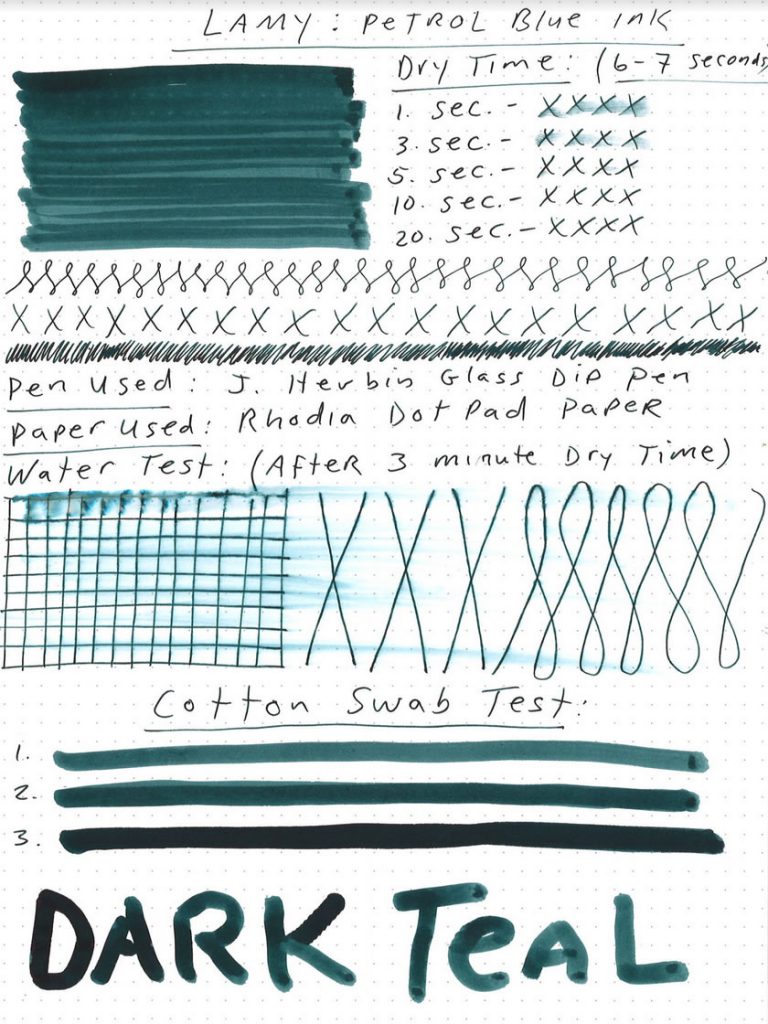 LAMY: Petrol Blue Ink
Dry Time: (6-7 seconds)
1. sec.- XXXX
3. sec.- XXXX
5. sec.- XXXX
10. sec.- XXXX
20. sec.- XXXX
X X X X X X X X X X X X X X X X X X X X
Pen Used: J. Herbin Glass Dip Pen
Paper Used: Rhodia Dot Pad Paper
Water Test: (After 3 minute Dry Time)
X X X
Cotton Swab Test:
1.
2.
3.
DARK TeAL